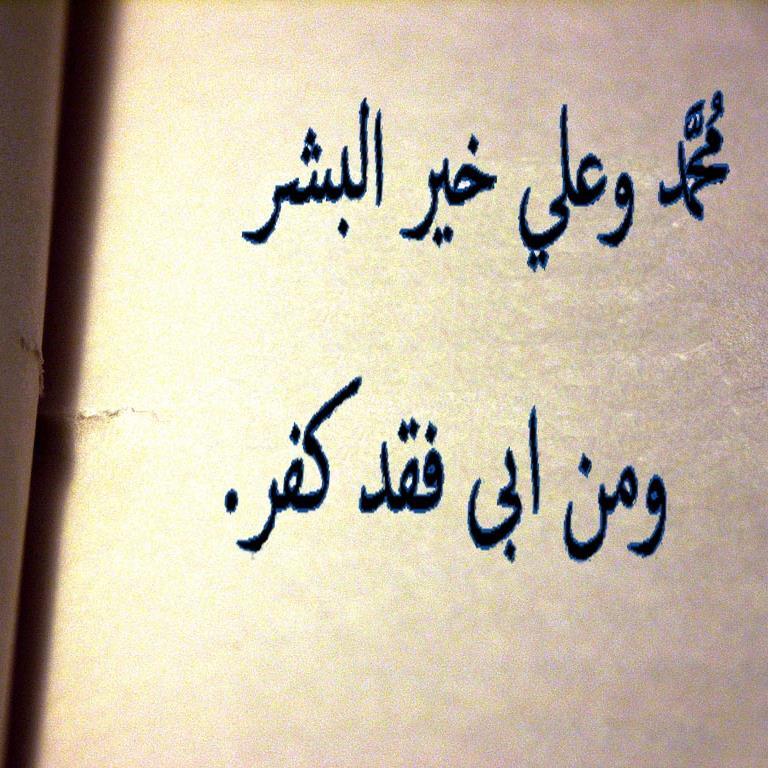 مُحَمَّد وعلي خير البشر
ومن ابى فقد كفر.